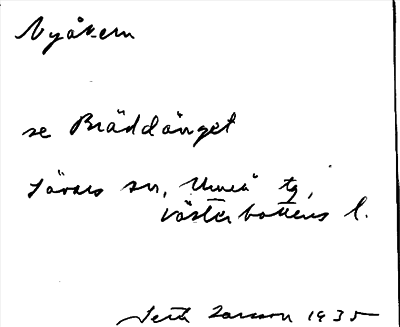 Nyåkern
se Bräddänget
Sävars sn, Umeå tg,
Västerbottens l.
Larsson 1935